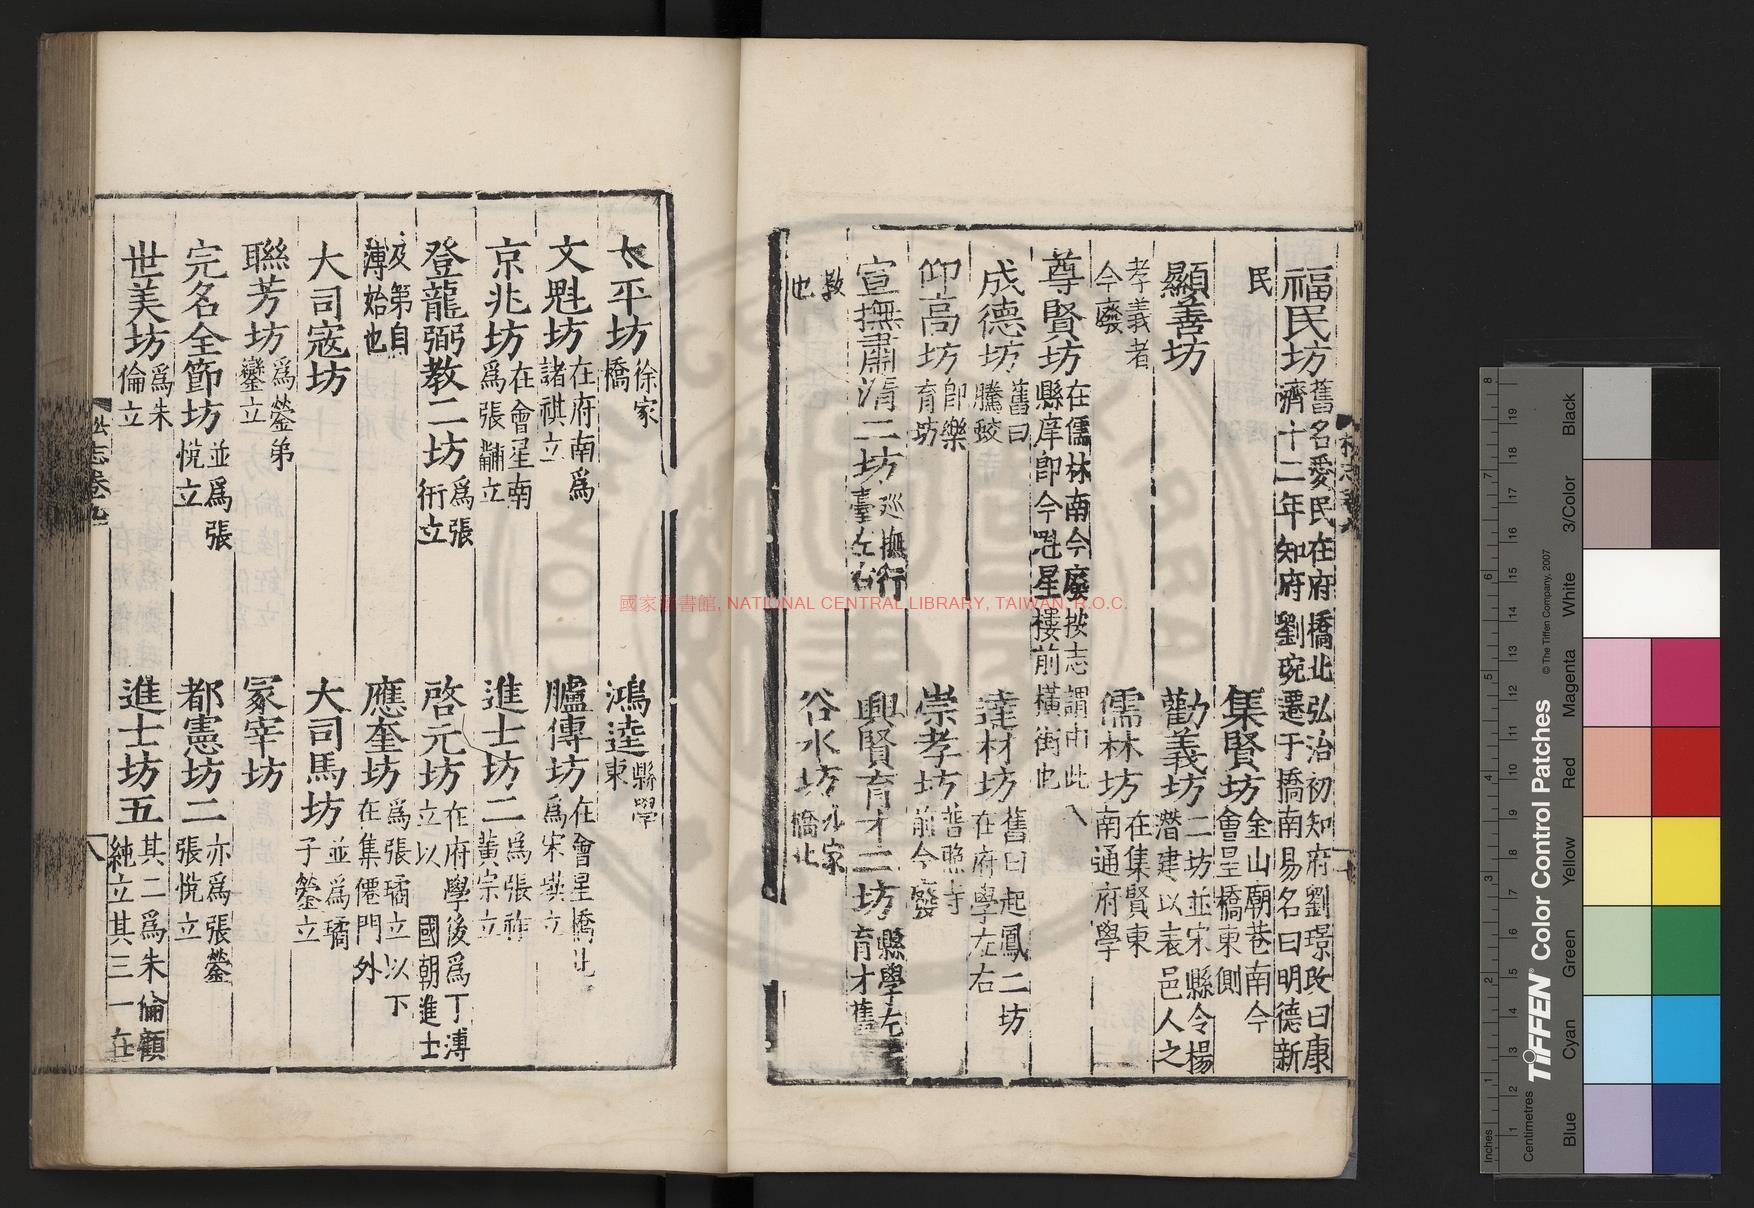 福民坊舊名愛民在府橋北弘治初知府劉璟改曰康
濟十二年知府劉琬遷于橋南易名曰明德新
民
集賢坊金山廟巷南今
會星橋東側
顯善坊
勸義坊二坊並宋縣令楊
潛建以表邑人之
孝義者
今廢
儒林坊在集賢東
南通府學
尊賢坊在儒林南今廢按志謂由此
縣庠即今魁星樓前橫街也
成德坊舊曰
騰蛟
達材坊舊曰起鳳二坊
在府學左右
仰高坊即樂
育坊
崇孝坊普照寺
前今廢
宣撫肅清二坊巡撫行
臺左右
興賢育才二坊縣學左
育才舊
教
也
谷水坊
橋北
太平坊徐家
橋
鴻逵縣學
東
文魁坊在府南為
諸祺立
臚傳坊在會星橋北
為宋瑛立
京兆坊在會星南
為張黼立
進士坊二為張祚
黃宗立
登龍弼教二坊為張
衎立
啓元坊在府學後為丁溥
立以 國朝進士
及第自
溥始也
應奎坊為張璚立以下
在集僊門外
大司寇坊
大司馬坊並為璚
子鎣立
聯芳坊為鎣弟
鑾立
冢宰坊
完名全節坊並為張
悅立
都憲坊二亦為張鎣
張悅立
世美坊為朱
倫立
進士坊五其二為朱倫顧
純立其三一在
松志卷九
國家圖書館, NATIONAL CENTRAL LIBRARY, TAIWAN, R.O.C.
TIFFEN® Color Control Patches
© The Tiffen Company, 2007
Centimetres
Inches
Blue
Cyan
Green
Yellow
Red
Magenta
White
3/Color
Black